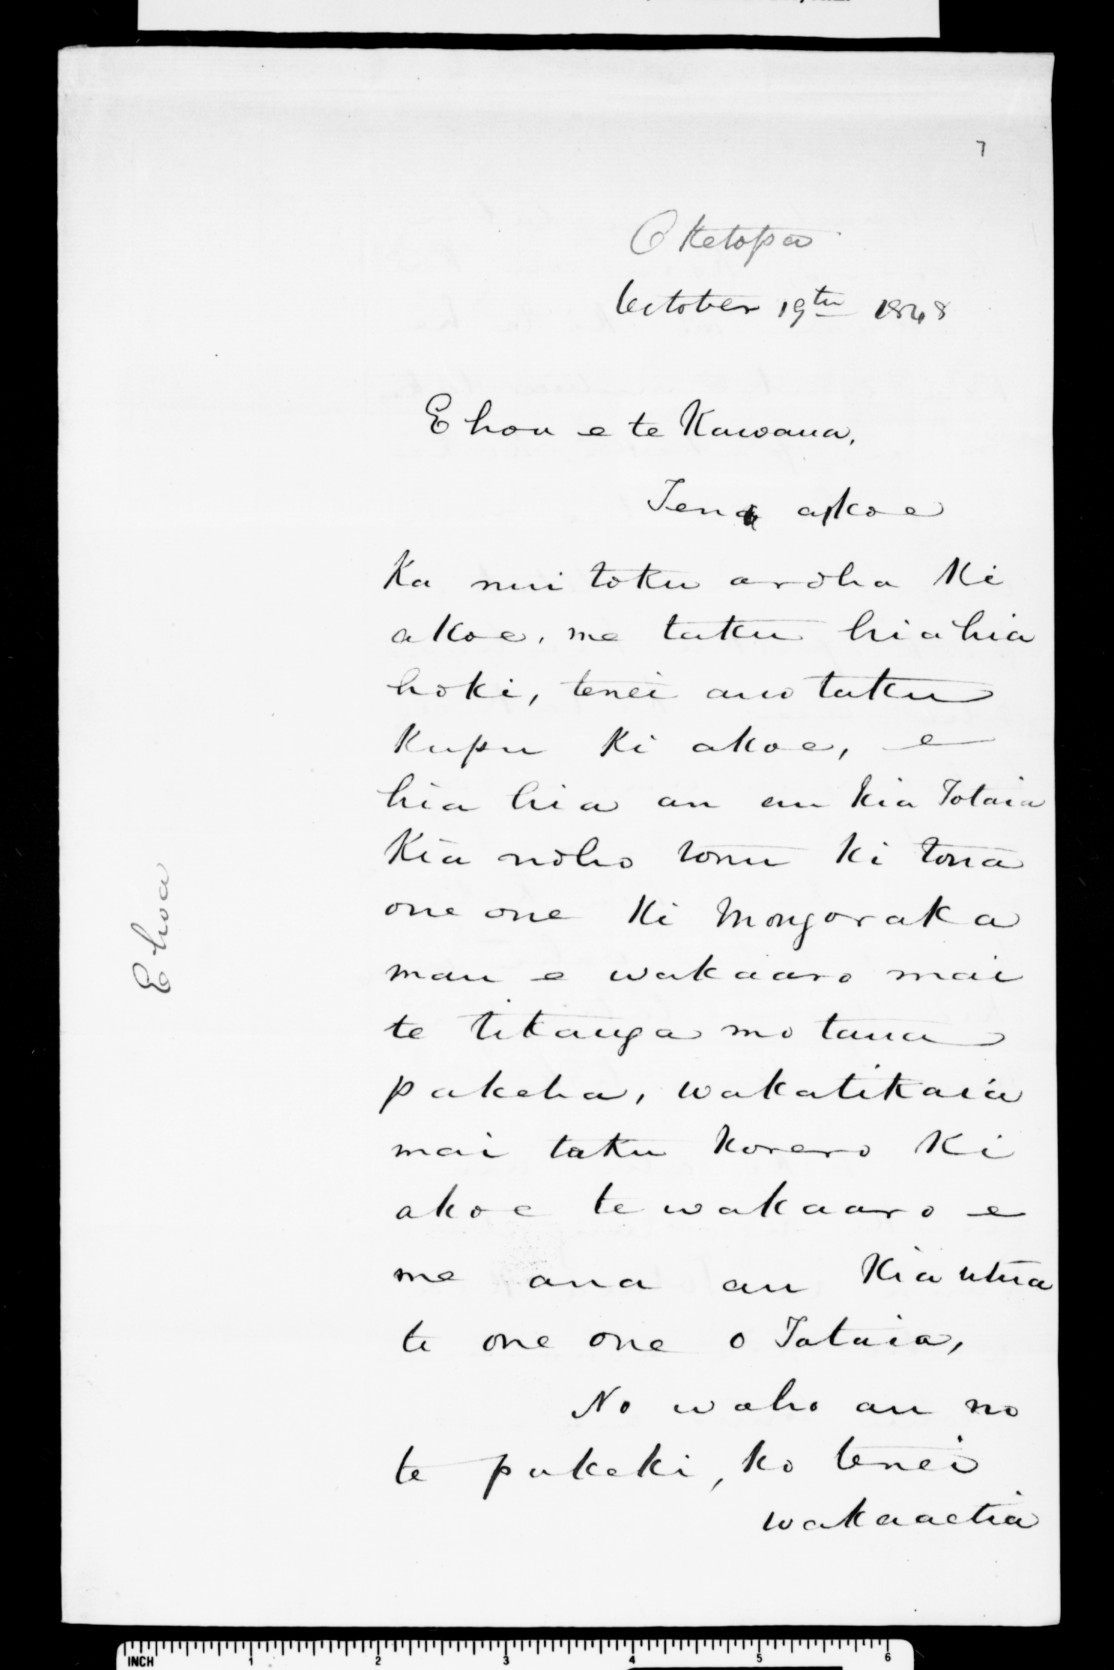 7
Oketopa
October 19th 1848
E hoa e te Kawana,
Tena akoe
Ka nui toku aroha Ki
akoe, me taku hiahia
hoki, tenei ano taku
Kupu Ki akoe, e
hia hia an au Kia Totaia
Kia noho tonu ki tona
one one Ki Mongoraka
mau e wakaaro mai
te tikanga mo taua
pakeha, wakatikaia
mai taku korero Ki
akoe te wakaaro e
me ana au Kia utua
te one one o Tataia,
No waho au no
te pukeki, ko tenei
wakaaetia
E hoa
INCH 1 2 3 4 5 6